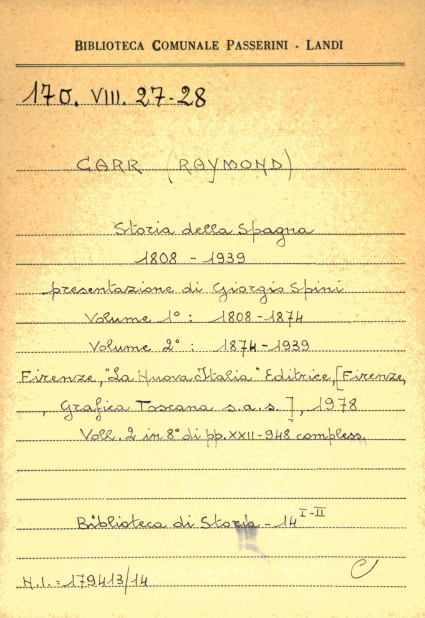 BIBLIOTECA COMUNALE PASSERINI - LANDI
170. VIII. 27-28
CARR (RAYMOND)
Storia della Spagna
1808 - 1939
presentazione di Giorgio Spini
Volume 1° : 1808-1874
Volume 2° : 1874-1939
Firenze, "La Nuova Italia" Editrice, [Firenze,
Grafica Toscana s.a.s.], 1978
Voll. 2 in 8° di pp. XXII-948 compless.
Biblioteca di Storia - 14 I-II
N.I. = 179413/14